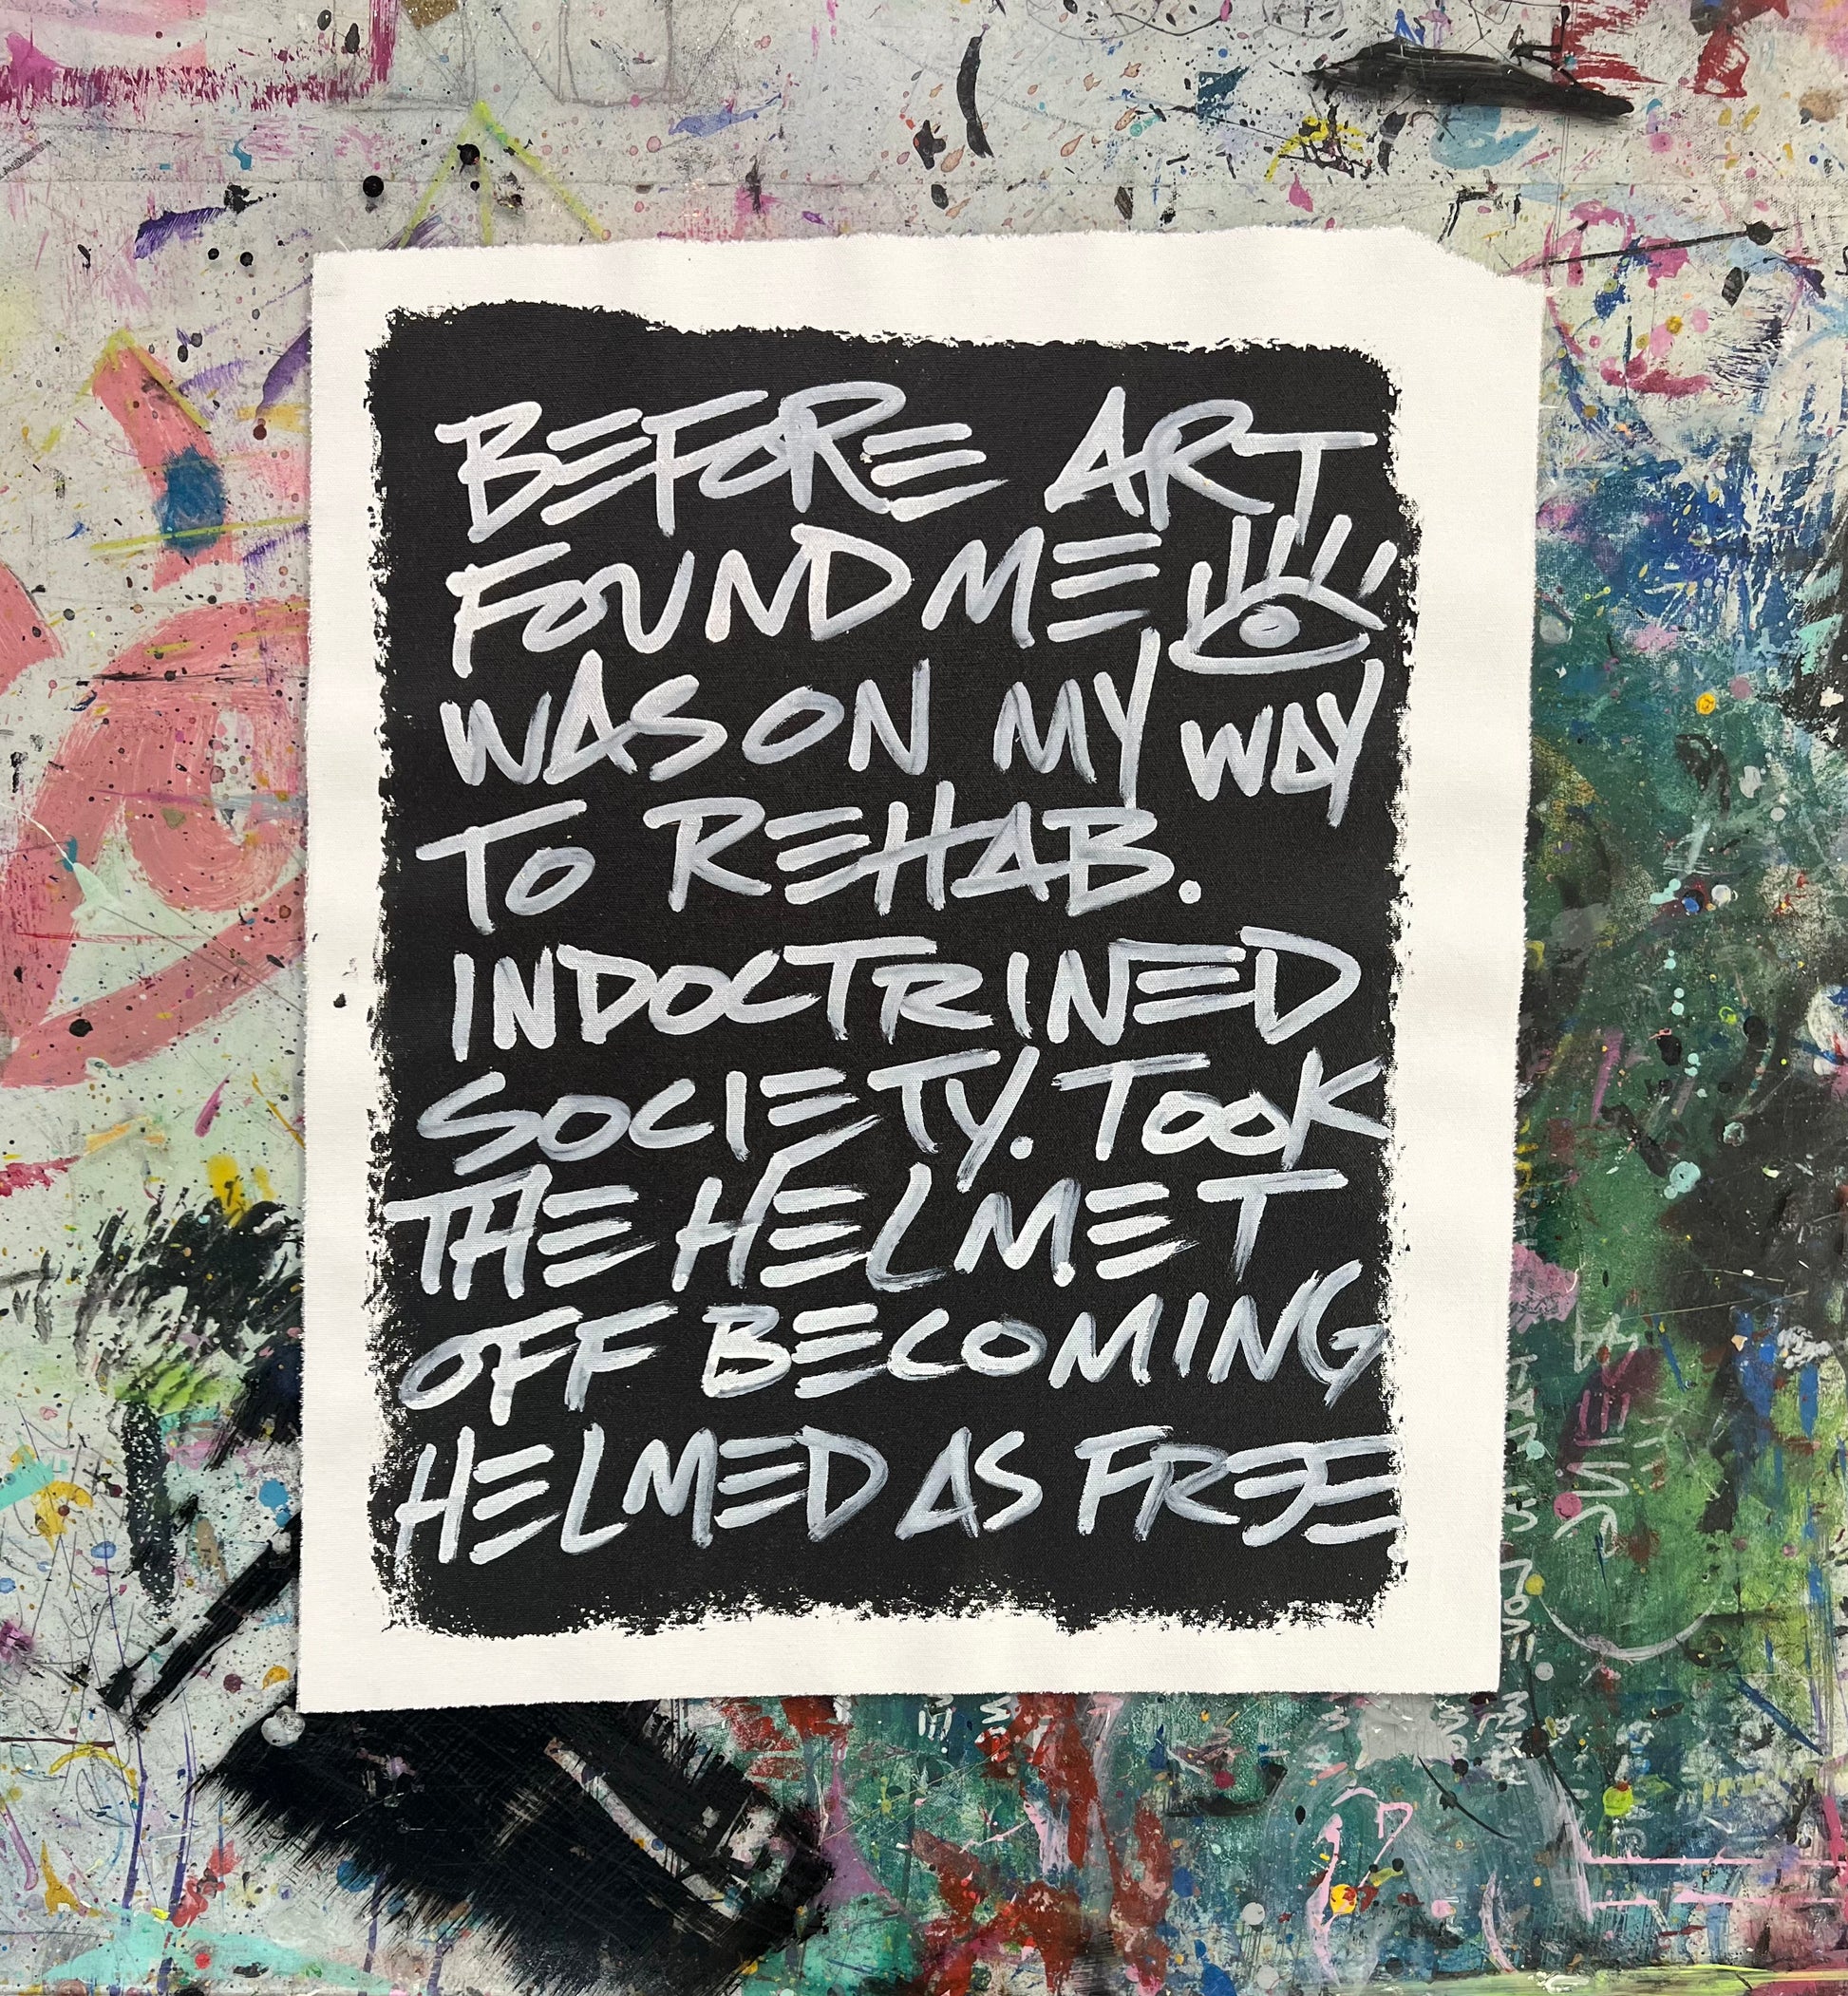 BEFORE ART
FOUND ME
WAS ON MY WAY
TO REHAB.
INDOCTRINED
SOCIETY. TOOK
THE HELMET
OFF BECOMING
HELMED AS FREE.